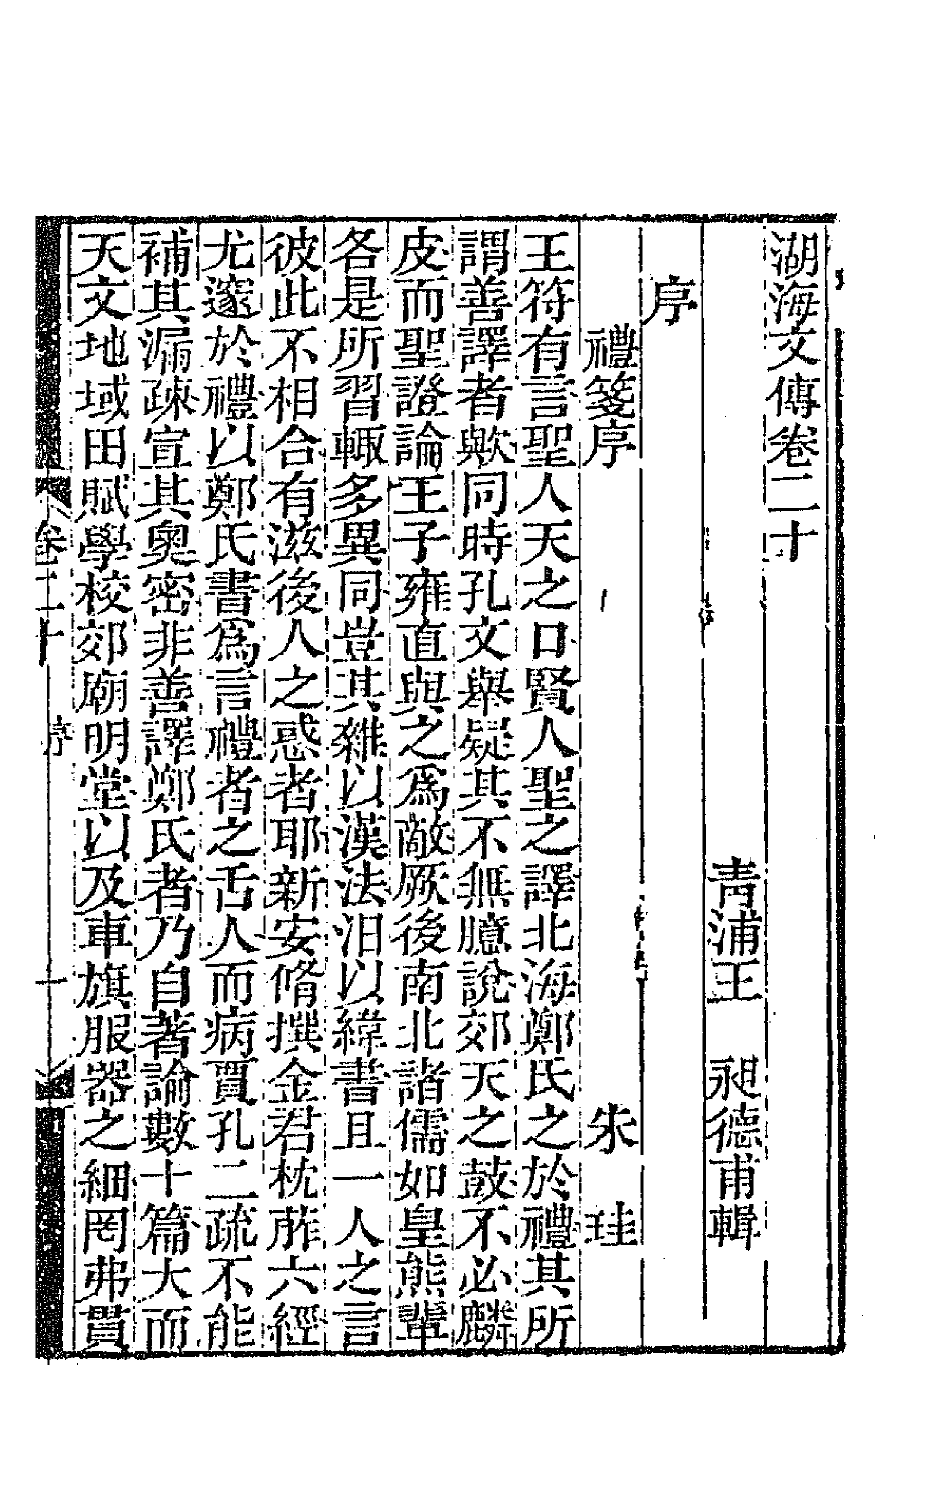 湖海文傳卷二十
青浦王 昶德甫輯
序
禮箋序 朱 珪
王符有言聖人天之口賢人聖之譯北海鄭氏之於禮其所
謂善譯者歟同時孔文舉疑其不無臆說郊天之鼓不必麟
皮而聖證論王子雍直與之爲敵厥後南北諸儒如皇熊輩
各是所習輒多異同豈其雜以漢法汨以緯書且一人之言
彼此不相合有滋後人之惑者耶新安脩撰金君枕葄六經
尤邃於禮以鄭氏書爲言禮者之舌人而病賈孔二疏不能
補其漏疎宣其奧密非善譯鄭氏者乃自著論數十篇大而
天文地域田賦學校郊廟明堂以及車旗服器之細罔弗貫
卷二十 序 一